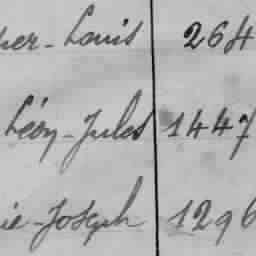 her-Louis 264
Léon-Jules 1447
ie-Joseph 1296